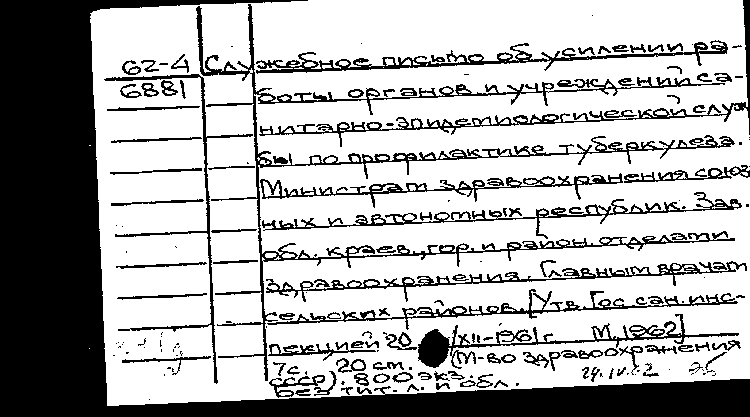 62-4 Служебное письмо об усилении ра-
6881 боты органов и учреждений са-
нитарно-эпидемиологической служ
бы по профилактике туберкулеза.
Министрам здравоохранения союз
ных и автономных республик. Зав.
обл., краев., гор. и район. отделами
здравоохранения. Главным врачам
сельских районов. [Утв. Гос. сан. инс-
пекцией 20/XII-1961г. М, 1962]
7с. 20 см. (М-во здравоохранения
СССР). 800 экз.
Без тит. л. и обл.